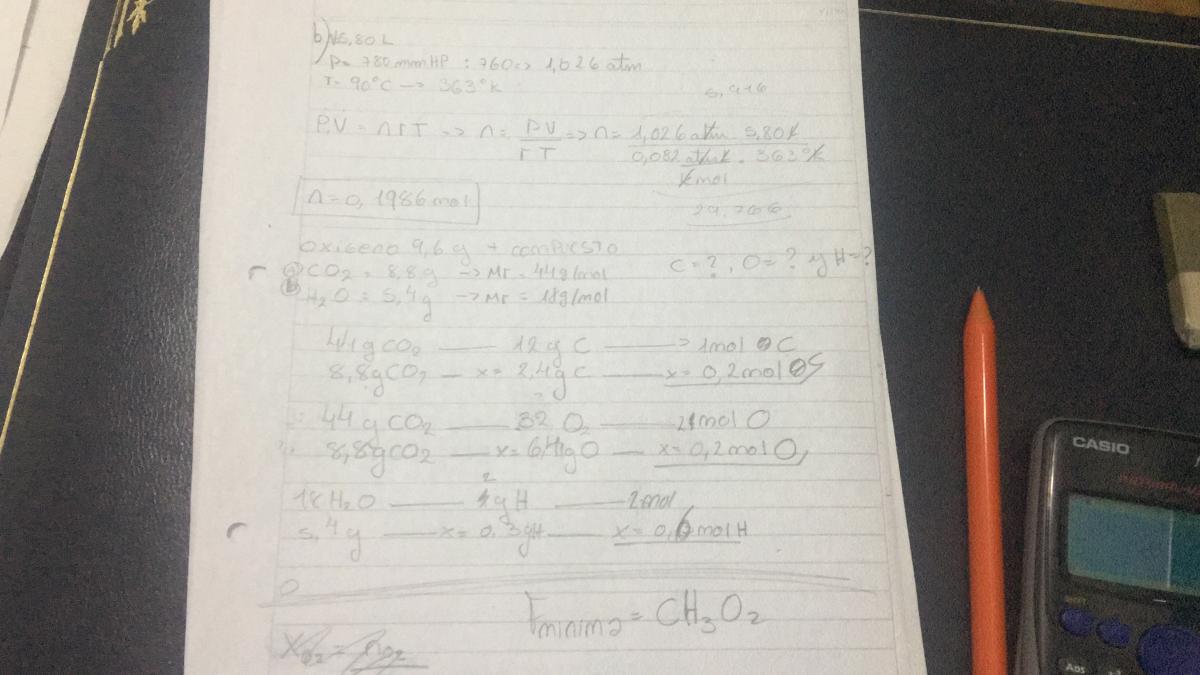 b) V=5,80 L
P= 780 mmHP : 760 => 1,026 atm
T= 90°C -> 363°K
5,916
P.V = n r T => n = PV / rT => n = 1,026 atm . 5,80 L / 0,082 atm.L / K mol . 363°K
29,766
n = 0,1986 mol
oxigeno 9,6 g + compuesto
C=?, O=? y H=?
a) CO2 = 8,8g -> Mr = 44g/mol
b) H2O = 5,4g -> Mr = 18g/mol
44g CO2 —— 12g C ——> 1mol C
8,8g CO2 — x= 2,4g C —— x= 0,2 mol C
44g CO2 —— 32 O2 —— 2 mol O
8,8g CO2 — x= 6,4g O — x= 0,2 mol O
18 H2O —— 2 g H —— 2 mol
5,4g —— x= 0,3 gH —— x= 0,6 mol H
Fminima = CH3O2
XO2 = nO2
CASIO
Abs